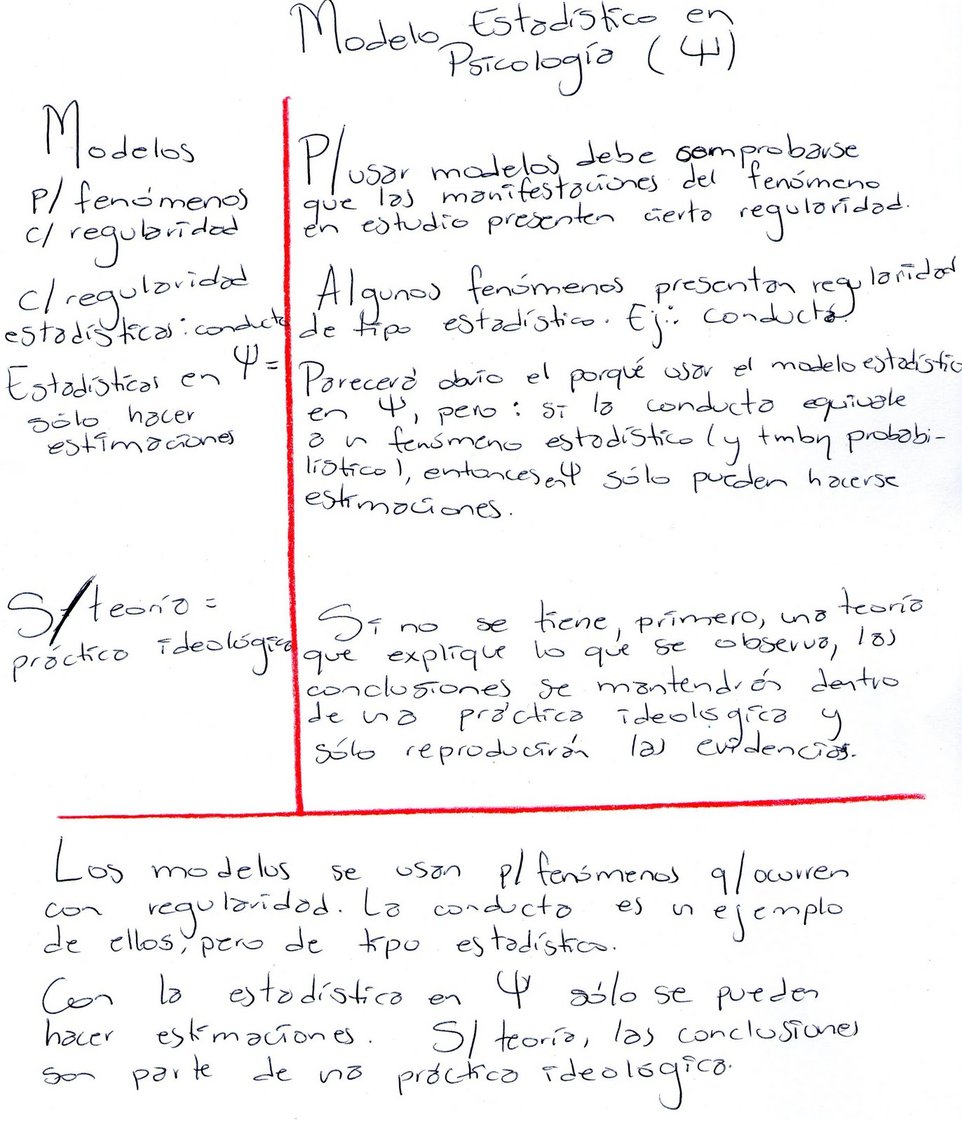 Modelo Estadístico en
Psicología (Ψ)
Modelos
p/ fenómenos
c/ regularidad
c/ regularidad
estadísticas: conducta
Estadísticas en Ψ =
sólo hacer
estimaciones
S/teoría =
práctica ideológica
P/usar modelos debe comprobarse
que las manifestaciones del fenómeno
en estudio presenten cierta regularidad.
Algunos fenómenos presentan regularidad
de tipo estadístico. Ej.: conducta.
Parecerá obvio el porqué usar el modelo estadístic
en Ψ, pero: si la conducta equivale
a un fenómeno estadístico (y tmbn probabi-
lístico), entonces en Ψ sólo pueden hacerse
estimaciones.
Si no se tiene, primero, una teoría
que explique lo que se observa, las
conclusiones se mantendrán dentro
de una práctica ideológica y
sólo reproducirán las evidencias.
Los modelos se usan p/ fenómenos q/ocurren
con regularidad. La conducta es un ejemplo
de ellos, pero de tipo estadístico.
Con la estadística en Ψ sólo se pueden
hacer estimaciones. S/ teoría, las conclusiones
son parte de una práctica ideológica.